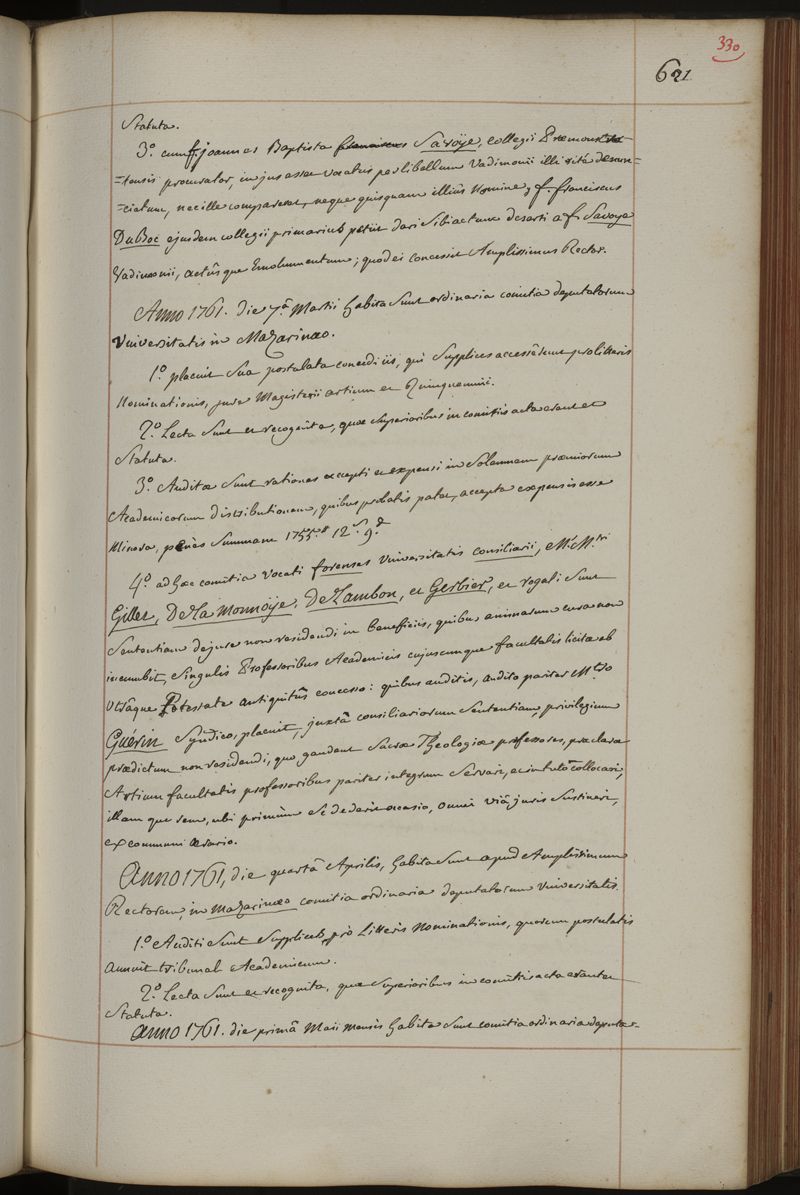 330
621
Statuta.
3.° cum f. joannes Baptista Savoÿe, collegii Præmons-
=tensis procurator, in jus esset vocatus per libellum Vadimonii illi ritè denun=
=ciatum, nec ille compareret, neque quisquam illius Nomine, f. franciscus
DuBoc ejusdem collegii primarius petiit dari Sibi actum deserti a f. Savoye
Vadimonii, actûsque Emolumentum; quod ei concessit Amplissimus Rector.
Anno 1761. die 7.â Martii habita Sunt ordinaria comitia deputatorum
Universitatis in Mazarinæo.
1.° placuit Sua postulata concedi iis, qui Supplices accessêrunt pro litteris
Nominationis, jure Magisterii artium et Quinquennii.
2.° Lecta Sunt et recognita, quæ Superioribus in comitiis acta erant et
Statuta.
3.° Auditæ Sunt rationes accepti et expensi in Solemnem præmiorum
Academicorum distributionem, quibus probatis patuit, accepta expensis esse
Minora, penès Summam 1755.ᵗᵗ 12.ˢ 9.ᵈ
4.° ad hæc comitia vocati forenses Universitatis consiliarii, M.ⁱ M.ᵗʳⁱ
Gillet, De La Monnoÿe, De Lambon, et Gerbier, et rogati Sunt
Sententiam de jure non residendi in beneficiis, quibus animarum cura non
incumbit, Singulis Professoribus Academicis cujuscumque facultatis licitæ ab
Utrâque Potestate antiquitùs concesso: quibus auditis, audito pariter M.ᵗʳᵒ
Guérin Syndico, placuit, juxtà consiliariorum Sententiam, privilegium
prædictum non residendi, quo gaudent Sacræ Theologiæ professores, præclaræ
Artium facultatis professoribus pariter integrum Servari, et in tuto collocari,
illamque rem, ubi primùm Se dederit occasio, omni viâ juris Sustineri,
ex communi ærario.
Anno 1761, die quartâ Aprilis, habita Sunt apud Amplissimum
Rectorem, in Mazarinæo comitia ordinaria deputatorum Universitatis.
1.° Auditi Sunt Supplices pro Litteris Nominationis, quorum postulatis
annuit tribunal Academicum.
2.° Lecta Sunt et recognita, quæ Superioribus in comitiis acta erant et
Statuta.
Anno 1761. die primâ Maii mensis habita Sunt comitia ordinaria deputa=